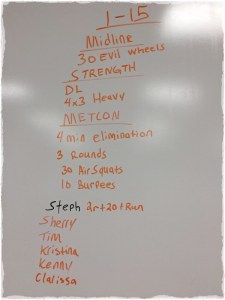 1-15
Midline
30 Evil wheels
STRENGTH
DL
4x3 Heavy
METCON
4 min elimination
3 Rounds
30 AirSquats
10 Burpees
Steph 2r+20+Run
Sherry
Tim
Kristina
Kenny
Clarissa